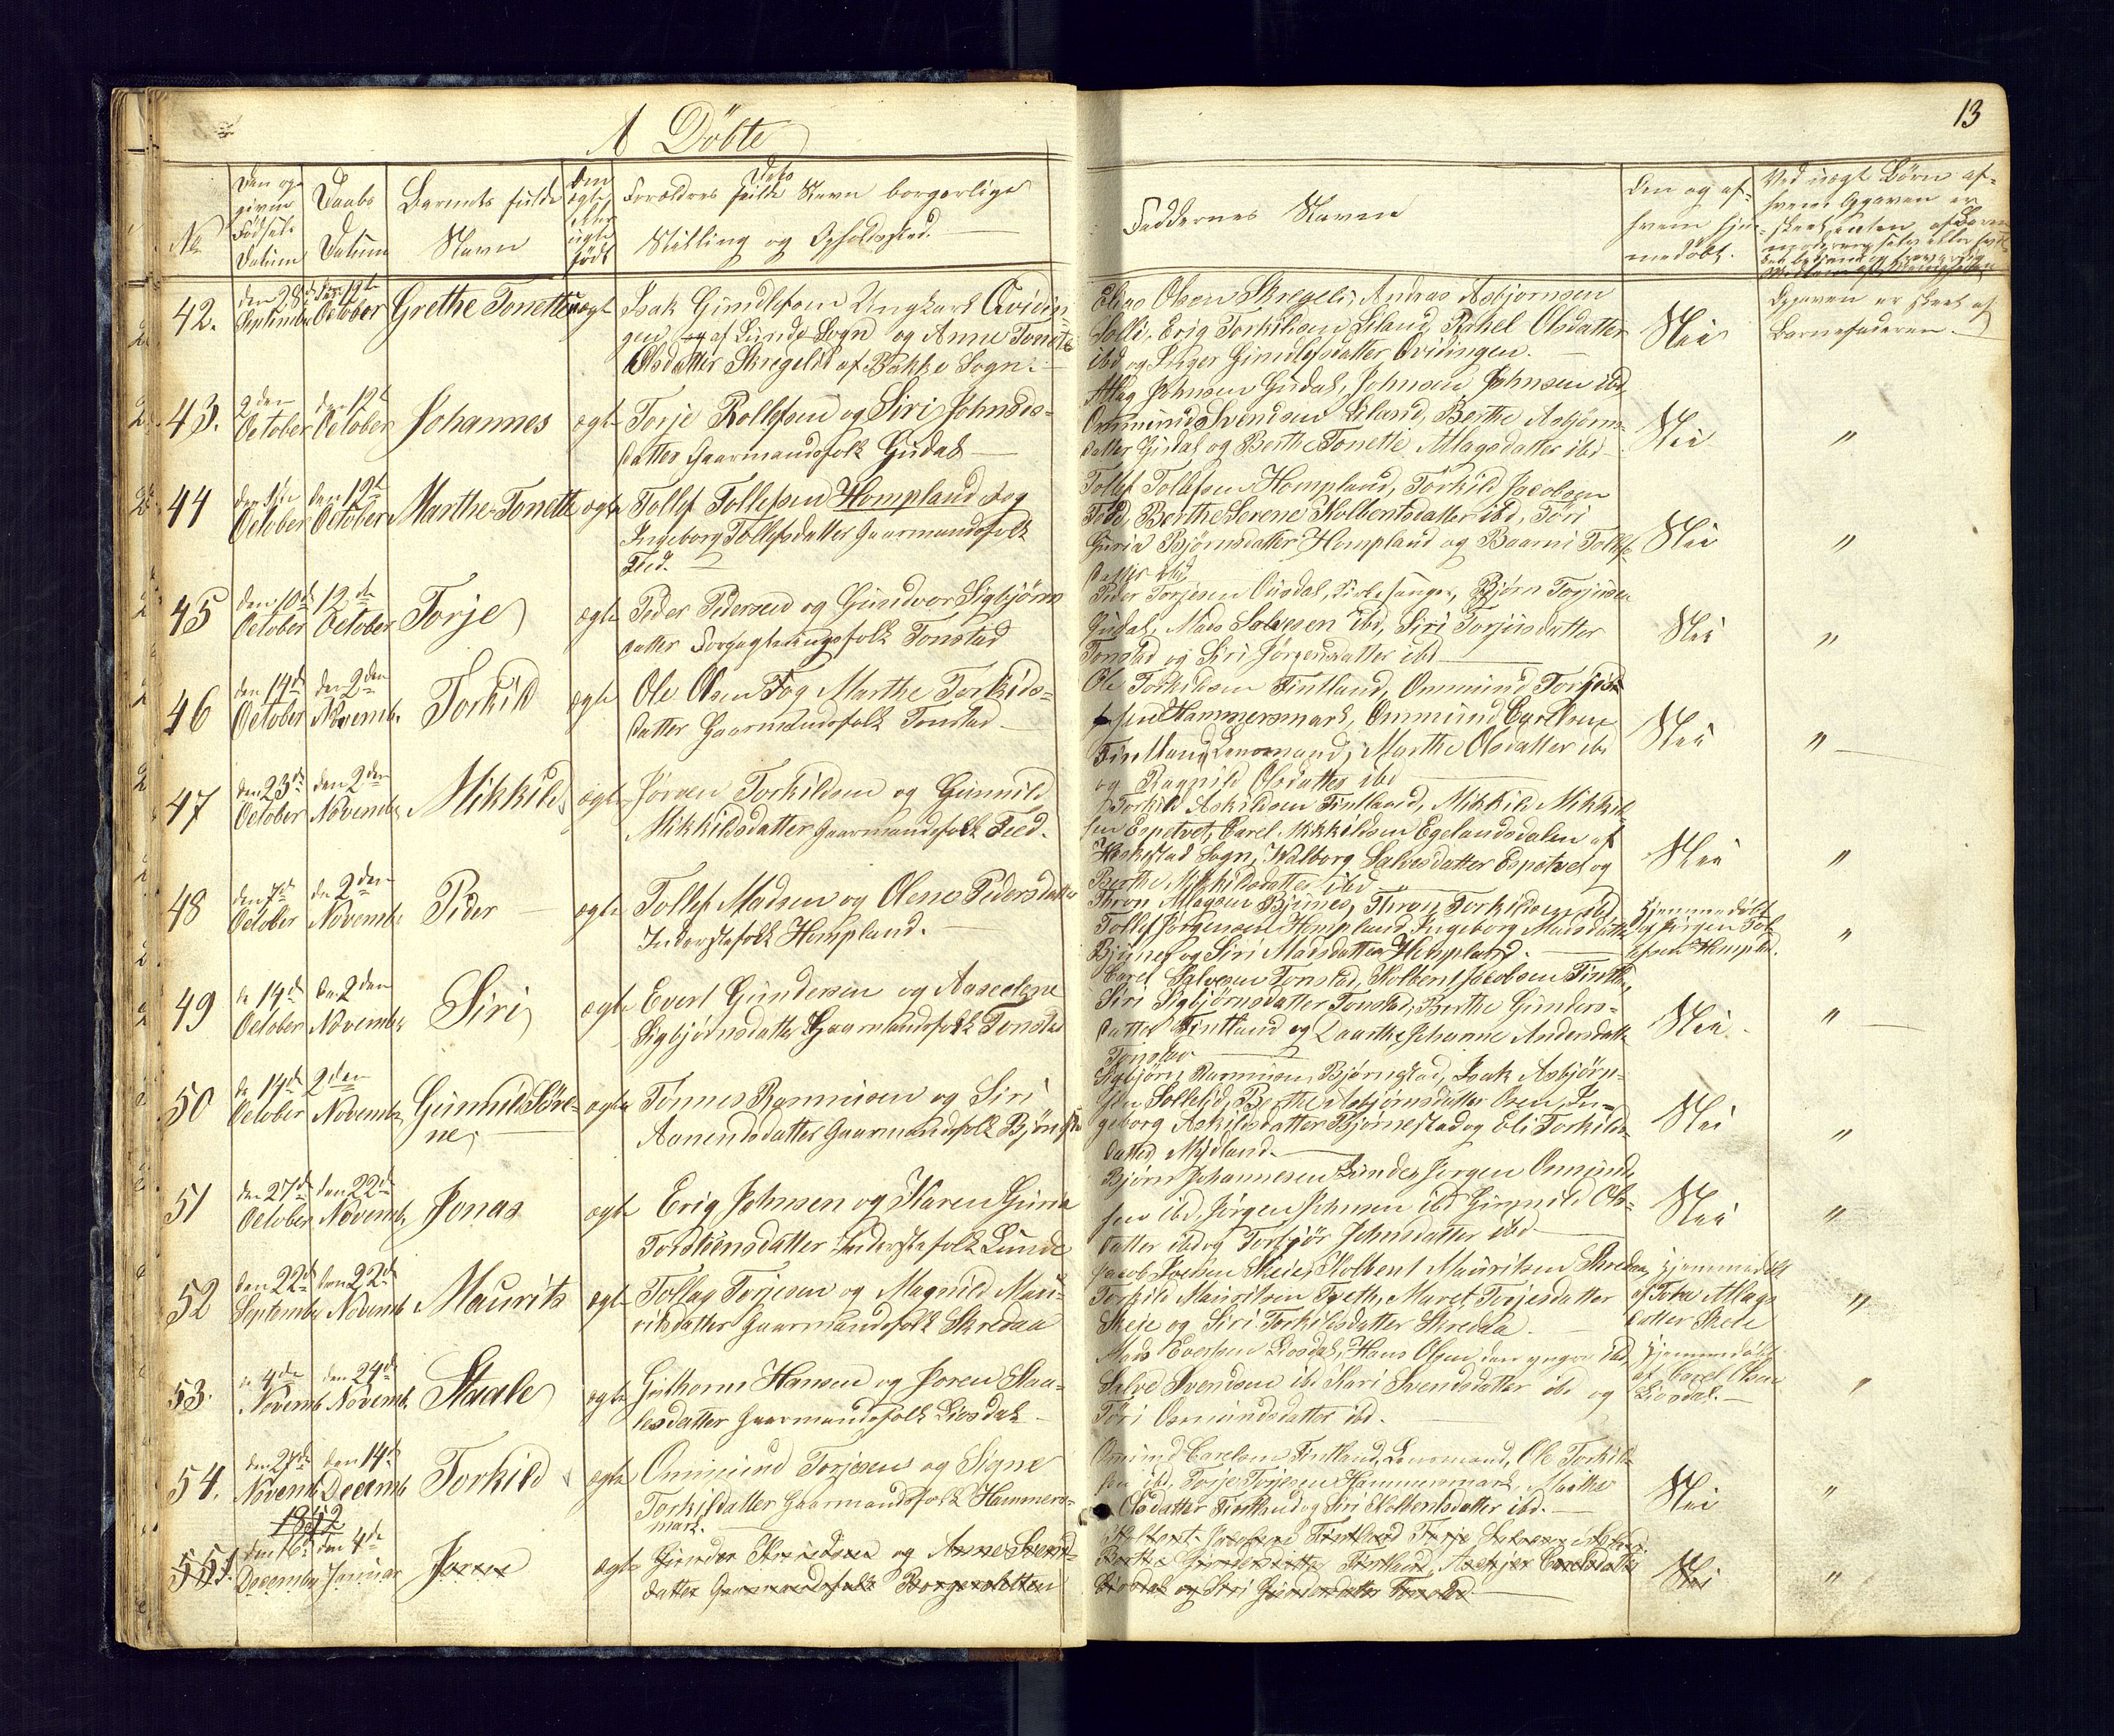 13
A Döbte
No
Den op
given
Födsels
Datum
Daabs
Datum
Barnets fulde
Navn
Om
ægte
eller
uægte
födt
Forældres fulde Navn borgerlige
Stilling og Opholdssted.
Faddernes Navne
Om og af
hvem hje-
medöbt.
Ved uægt Börn af
42.
den 28de
September
den 12t
October
Grethe Tonette
uægt
Isak Gundlefsen Ungkarl Qvidin
gen af Lunde Sogn og Anne Tonete
Olsdatter Skregelid af Bakke Sogn.
Elias Olsen Skregeli, Andreas Asbjornsen
Solli, Erig Torkildsen Eiland, Rakel Olsdatter
ibd og Inger Gundlefsdatter Qvidingen.
Nei
Opgaven er skeet af
Barnefaderen.
43.
2den
October
den 12t
October
Johannes
ægte
Torje Rollefsen og Siri Johnsis-
datter Gaarmandsfolk Gudal
Atlag Johnsen Gudal, Johnsen Johnsen ibd
Ommund Svendsen Eiland, Berthe Asbjörns-
datter Gudal og Berthe Tonette Atlagsdatter ibd
Nei
"
44
October
den 12t
October
Marthe Tonette
ægte
Tollef Tollefsen Hompland og
Ingeborg Tollefsdatter Gaarmandsfolk
Fed.
Tollef Tollefsen Hompland, Torkild Jacobsen
Fed, Berthe Serene Kolbentsdatter ibd, Töri
Guria Björnsdatter Hompland og Baarni Tollefs
datter ibd
Nei
"
45
den 10de
October
12de
October
Torje
ægte
Peder Pedersen og Gundvor Sigbjörns
datter Forpagtningsfolk Tonstad
Peder Torjesen Ousdal, Kirkesanger, Björn Torjusen
Gudal, Mads Salvesen ibd, Siri Torjusdatter
Tonstad og Siri Jörgensdatter ibd
Nei
"
46
den 14de
October
den 2den
Novemb.
Torkild
ægte
Ole Olsen Fog Marthe Torkilds-
datter Gaarmandsfolk Tonstad
Ole Torkildsen Fintland, Ommund Torkild
sen Hammersmark, Ommund Carelsen
Fintland Lensmand, Marthe Olsdatter ibd
og Ragnild Olsdatter ibd
Nei
"
47
den 23de
October
den 2den
Novemb
Mikkild
ægte
Jörgen Torkildsen og Gunnild
Mikkildsdatter Gaarmandsfolk Fed.
Torkild Askildsen Fintland, Mikkild Mikkild
sen Espetvet, Carel Mikkildsen Egelandsdalen af
Heskestad Sogn, Walborg Salvesdatter Espetvet og
Berthe Mikkildsdatter ibd
Nei
"
48
den 7de
October
de 2den
Novemb
Peder
ægte
Tollef Madsen og Olene Pedersdatter
Inderstefolk Hompland.
Thron Atlagsen Bjunes, Thron Torkildsen ibd
Tollef Jörgensen Hompland Ingeborg Madsdatter
Bjunes og Siri Madsdatter Hompland.
Hjemmedöbt
af Jörgen Tol-
lefsen Hompland.
"
49
de 14de
October
den 2den
Novemb
Siri
ægte
Evert Gundersen og Aaselene
Sigbjörnsdatter Gaarmandsfolk Tonstad
Carel Salvesen Tonstad, Kolbent Jacobsen Fintland,
Siri Sigbjörnsdatter Tonstad, Berthe Gunders-
datter Fintland og Daarthe Johanne Andersdatter
Tonstad
Nei
"
50
de 14de
October
2den
Novemb
Gunnild Söre-
ne
ægte
Tönnes Rasmusen og Siri
Aanensdatter Gaarmandsfolk Björnestad
Sigbjörn Rasmusen Björnestad, Isak Asbjörn-
sen Sollelid, Berthe Asbjörnsdatter Osen, In-
geborg Askildsdatter Björnestad og Eli Torkilds-
datter Mydland.
Nei
"
51
den 27de
October
den 22de
Novemb
Jonas
ægte
Erig Johnsen og Karen Guria
Torsteinsdatter Inderstefolk Lunde
Björn Johannesen Lunde, Jörgen Omund-
sen ibd, Jörgen Johnsen ibd Gunnild Ols-
datter ibd og Torbjör Johnsdatter ibd
Nei
"
52
den 22de
September
den 22de
Novemb
Maurits
ægte
Tollag Torjesen og Magnild Mau-
ritsdatter Gaarmandsfolk Skredaa
Jacob Iversen Skeie, Kolbent Mauritsen Skredaa,
Torkild Mauritsen Tveth, Maret Torjesdatter
Skeie og Siri Torkildsdatter Skredaa.
Hjemmedöbt
af Tobia Atlags
datter Skeie
"
53.
de 4de
Novemb
den 24de
Novemb.
Staale
ægte
Guthorm Hansen og Joren Staa-
lesdatter Gaarmandsfolk Liosdal
Mads Evertsen Liosdal, Hans Olsen den yngre ibd,
Salve Svendsen ibd Kari Svendsdatter ibd og
Töri Osmundsdatter ibd.
Hjemmedöbt
af Carel Olsen
Liosdal.
"
54.
den 27de
Novemb
den 14de
Decemb
Torkild
ægte
Ommund Torjesen og Signe
Torkildsdatter Gaarmandsfolk Hammers-
mark.
Omund Carelsen Fintland, Lensmand, Ole Torkild-
sen ibd, Torje Torjesen Hammersmark, Marthe
Olsdatter Fintland og Siri Kolbentsdatter ibd.
Nei
"
1842
551.
den 16de
Decembr
den 4de
Januar
Joren
ægte
Gunder Svendsen og Anne Svend-
datter Gaarmandsfolk
og Siri Gundersdatter Tonstad
Nei
"